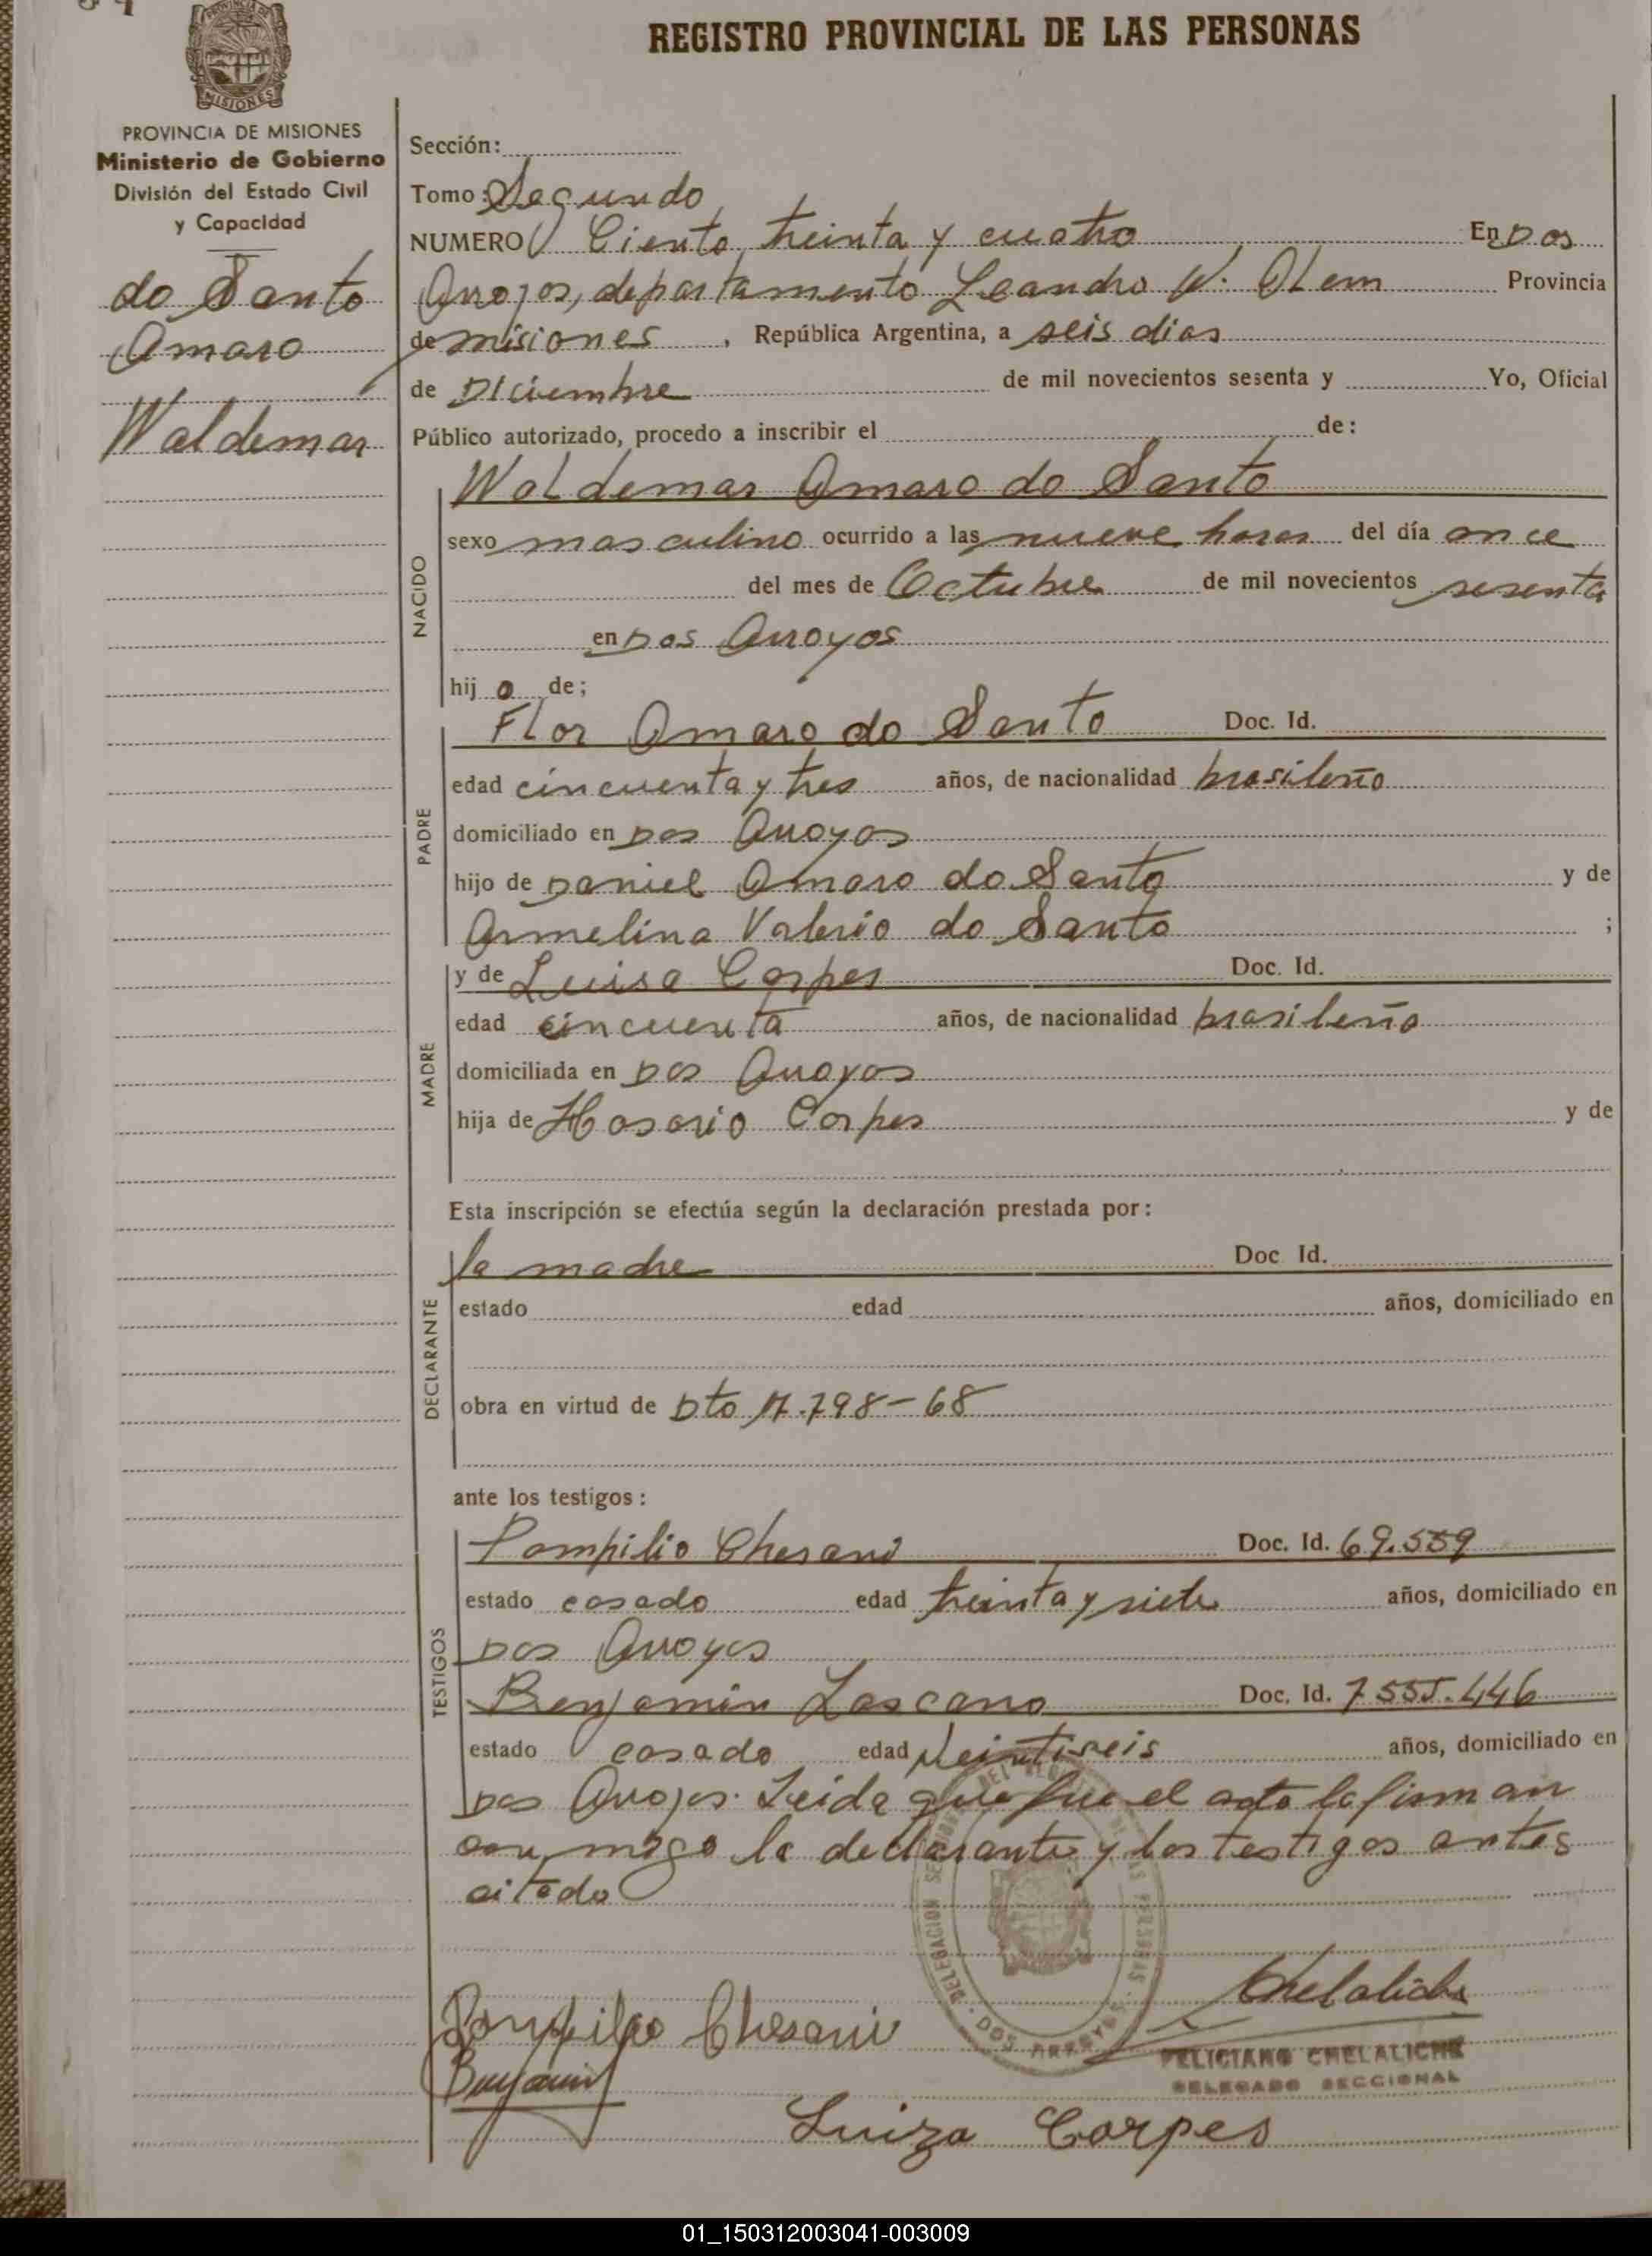 REGISTRO PROVINCIAL DE LAS PERSONAS
PROVINCIA DE MISIONES
Ministerio de Gobierno
División del Estado Civil
y Capacidad
do Santo
Amaro
Waldemar
Sección:
Tomo: Segundo
NUMERO Ciento treinta y cuatro En Dos
Arroyos, departamento Leandro N. Alem Provincia
de misiones, República Argentina, a seis dias
de Diciembre de mil novecientos sesenta y Yo, Oficial
Público autorizado, procedo a inscribir el de:
Waldemar Amaro do Santo
NACIDO
sexo masculino ocurrido a las nueve horas del día once
del mes de Octubre de mil novecientos sesenta
en Dos Arroyos
hijo de;
PADRE
Flor Amaro do Santo Doc. Id.
edad cincuenta y tres años, de nacionalidad brasileño
domiciliado en Dos Arroyos
hijo de Daniel Amaro do Santo y de
Armelina Valerio do Santo ;
MADRE
y de Luisa Corpes Doc. Id.
edad cincuenta años, de nacionalidad brasileña
domiciliada en Dos Arroyos
hija de Hosorio Corpes y de
Esta inscripción se efectúa según la declaración prestada por:
DECLARANTE
la madre Doc Id.
estado edad años, domiciliado en
obra en virtud de Dto .798-68
ante los testigos:
TESTIGOS
Pompilio Chesani Doc. Id. 69.559
estado casado edad treinta y siete años, domiciliado en
Dos Arroyos
Benjamín Lascano Doc. Id. 7.555.446
estado casado edad Veintiseis años, domiciliado en
Dos Arroyos. Leida que fue el acta la firman
conmigo la declarante y los testigos antes
citado
DELEGACION DEL REGISTRO DE LAS PERSONAS · DOS ARROYOS ·
Pompilio Chesani
Chelaliche
FELICIANO CHELALICHE
DELEGADO SECCIONAL
Benjamin
Luiza Corpes
01_150312003041-003009